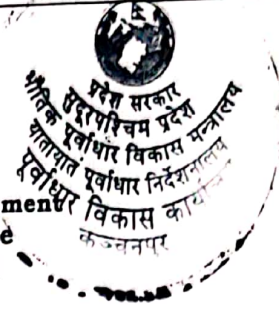 प्रदेश सरकार
सुदूरपश्चिम प्रदेश
भौतिक पूर्वाधार विकास मन्त्रालय
यातायात पूर्वाधार निर्देशनालय
पूर्वाधार विकास
कञ्चनपुर